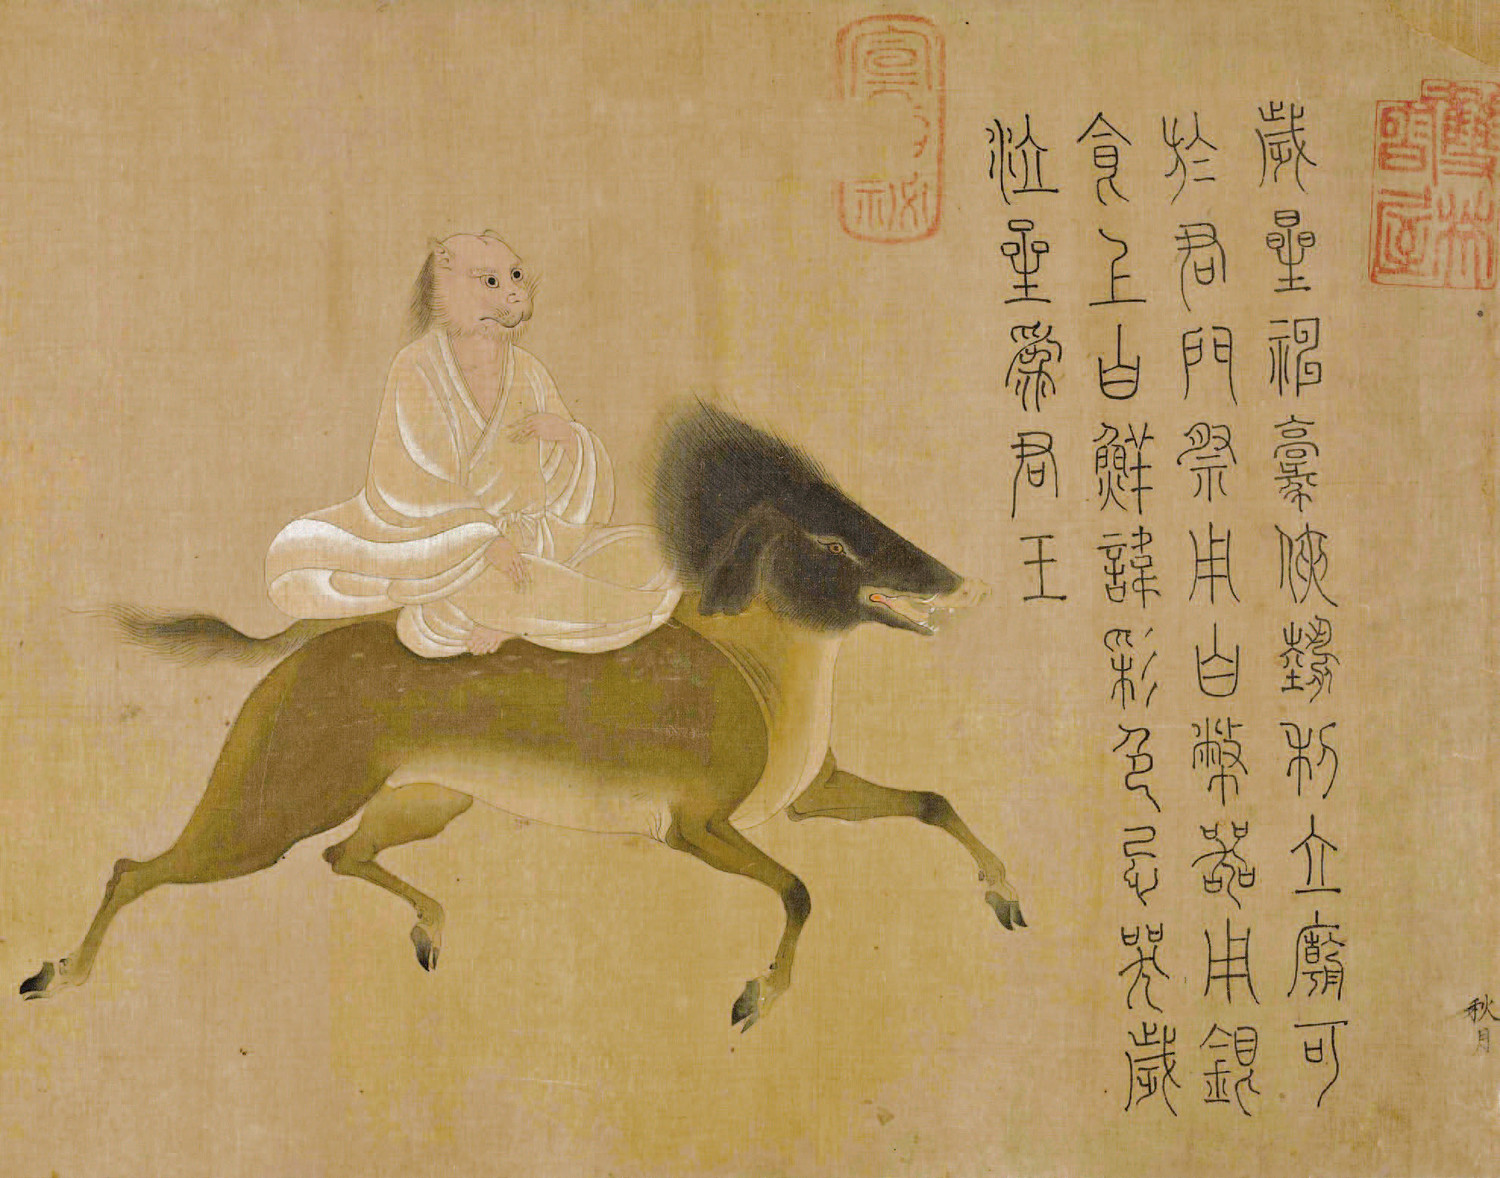 秋月
歲星神豪俠勢利立廟可
於君門祭用白幣器用銀
食上白鮮諱彩色忌哭歲
泣星為君王